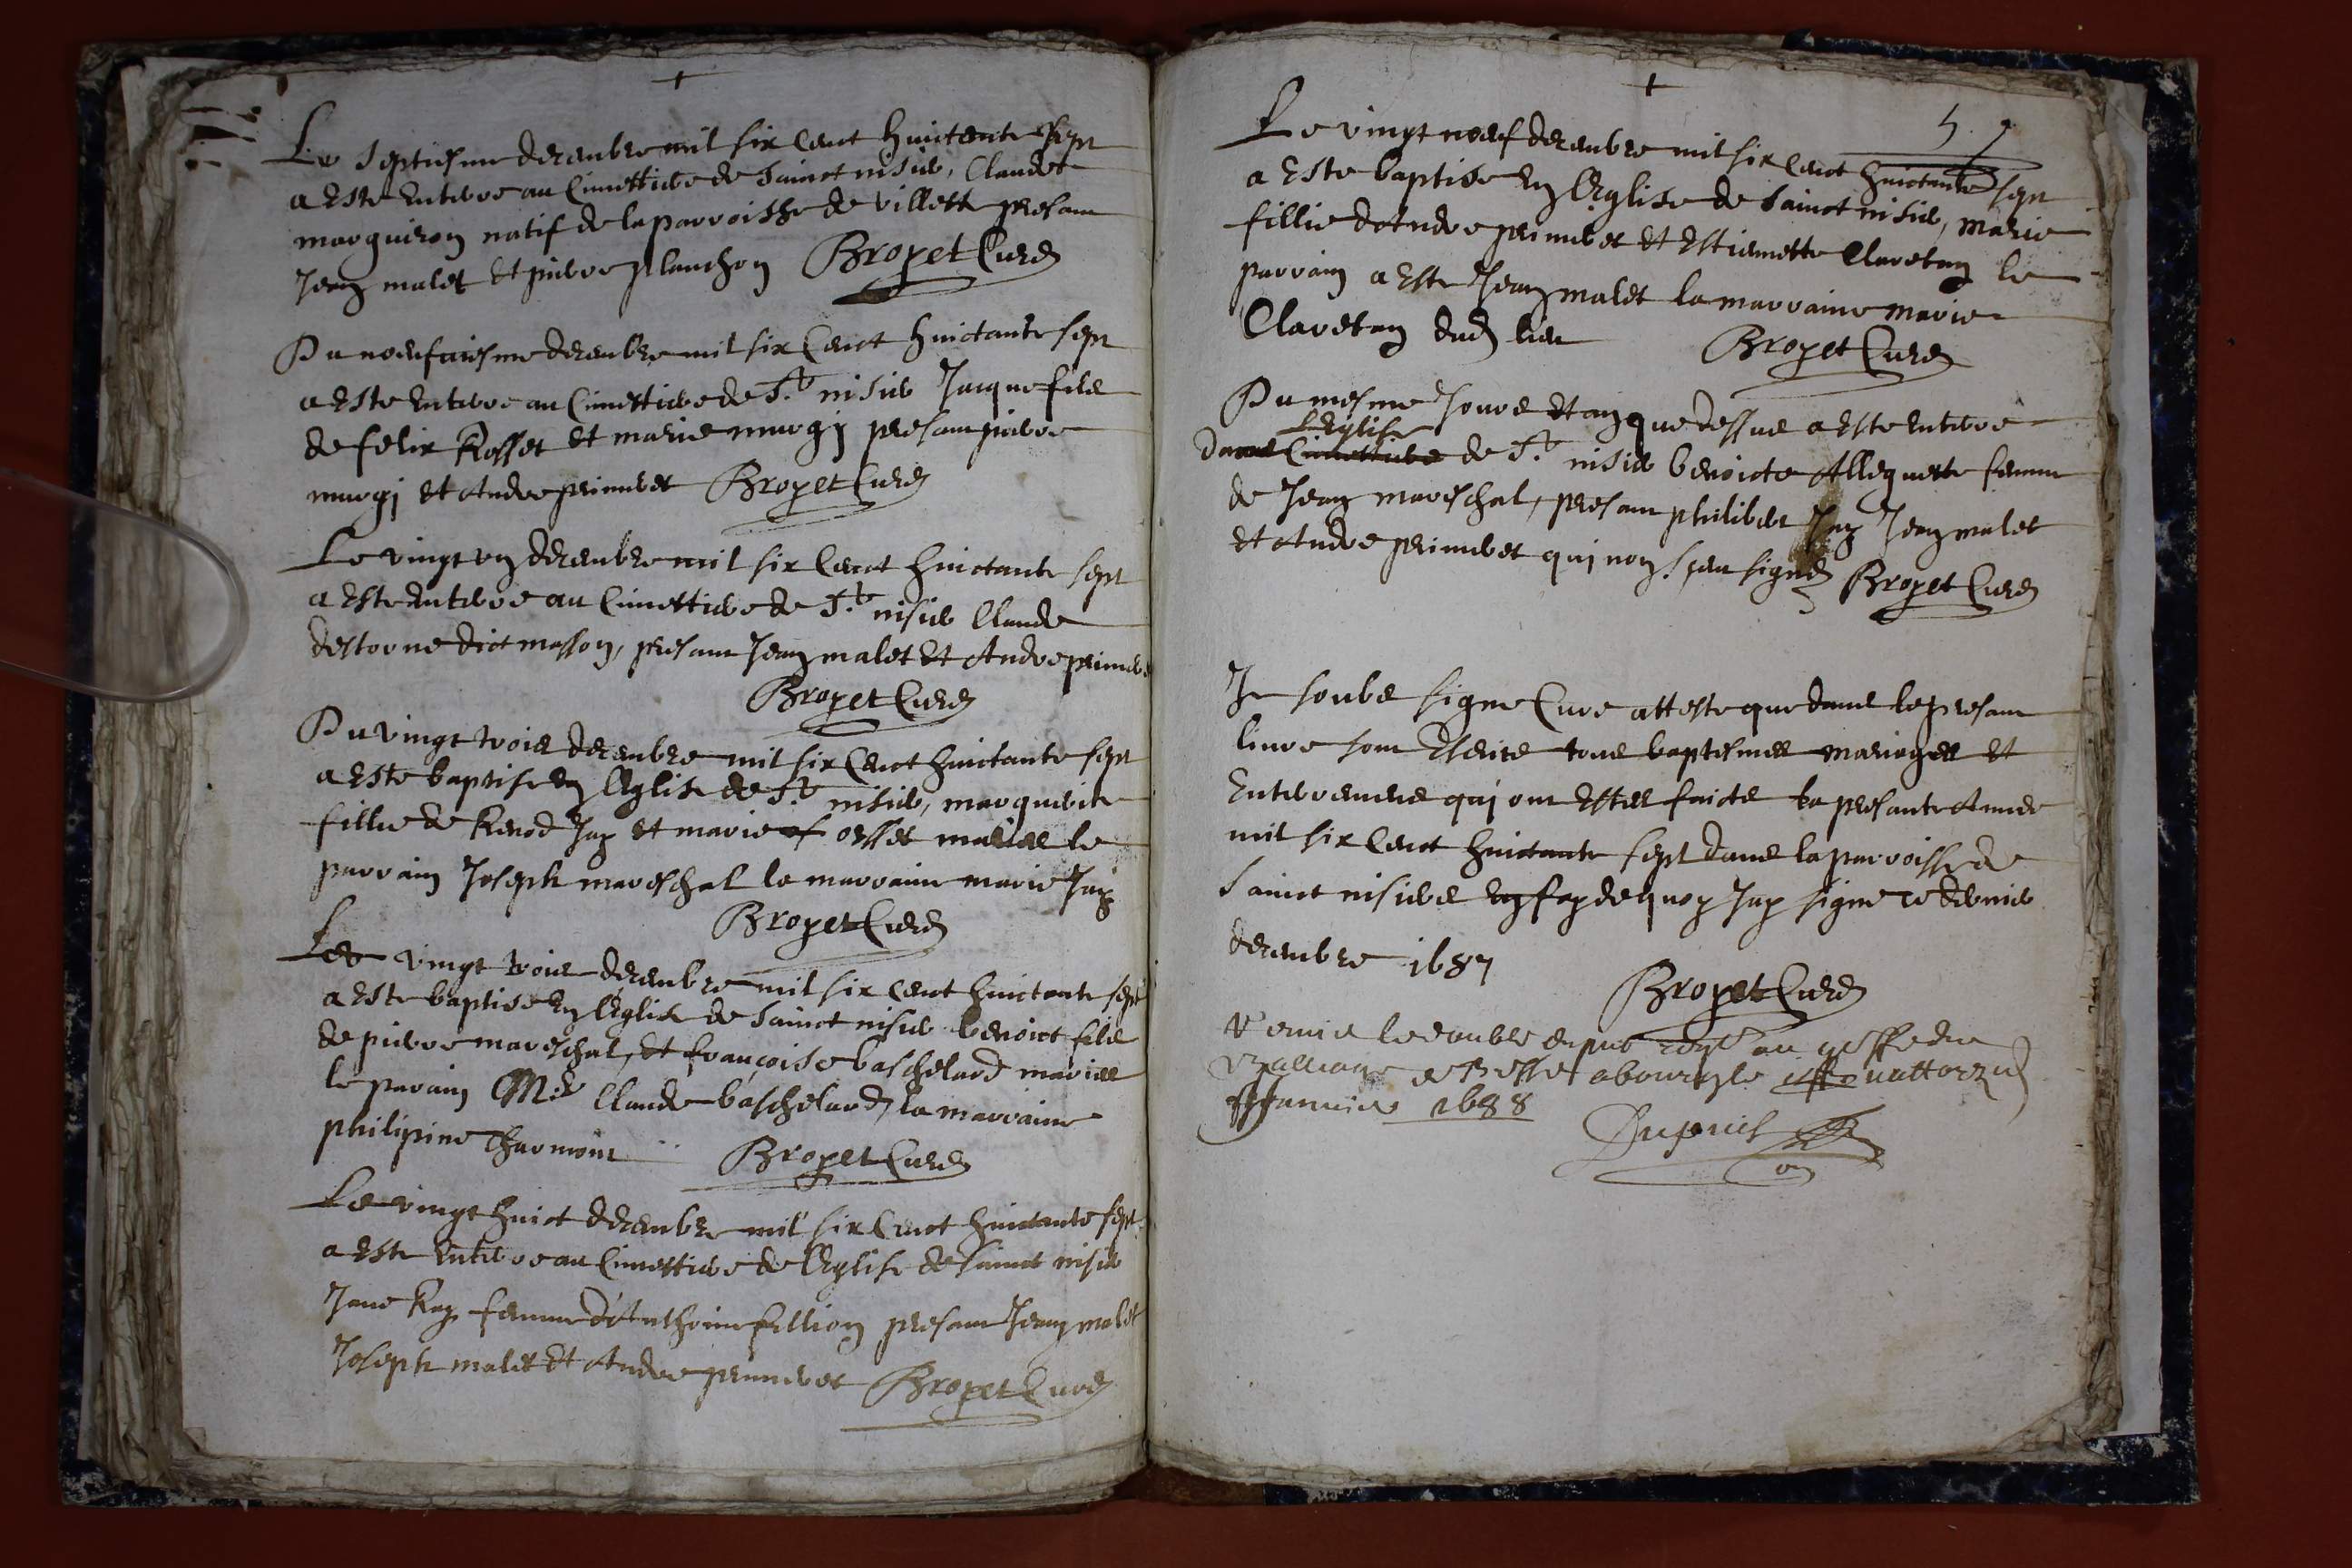 Le septiesme decembre mil six cent huictante sept
a este enterre au Cimettiere de Sainct nisier, Claude
margueron natif de la parroisse de villette presant
Jean malet et pierre planchon Broyet Curé
Du noeufviesme decembre mil six cent huictante sept
a este enterre au Cimettiere de St nisier Jacque fils
de felix Rosset et marie murgj presant pierre
murgj et Andre perinibet Broyet Curé
Le vingt vn decembre mil six cent huictante sept
a este enterre au Cimettiere de St nisier Claude
destorne dict masson, presant Jean malet et Andre
Broyet Curé
Du vingt trois decembre mil six cent huictante sept
a este baptise en leglise de St nisier, marguerite
fillie de Jay et marie maries le
parrain Joseph mareschal la marraine marie Jay
Broyet Curé
Le vingt trois decembre mil six cent huictante sept
a este baptise en leglise de Sainct nisier benoict fils
de pierre mareschal, et françoise baschelard maries
le parain Mr Claude baschelard, la marraine
philipine Charmont Broyet Curé
Le vingt huict decembre mil six cent huictante sept
a este enterre au Cimettiere de leglise de Sainct nisier
Jane Ray femme d'Anthoine fillion presant Jean malet
Joseph malet et Andre Broyet Curé
Le vingt noeuf decembre mil six cent huictante sept
a este baptise en leglise de Sainct nisier, marie
fillie d'Andre perinibet et estiennette Clavetan le
parrain a este Jean malet la marraine marie
Clavetan dud lieu
Broyet Curé
Du mesme Jour et an que dessus a este enterre
leglise
dans Cimettiere de St nisier benoicte Allequette femme
de Jean mareschal, presant philibert Jay Jean malet
et Andre perinibet qui non sceu signé Broyet Curé
Je soubs signe Curé atteste que dans le presant
livre sont escrits tous baptesmes mariages et
Enterremens qui ont estes faicts la presante Annee
mil six cent huictante sept dans la parroisse de
Sainct nisier en foy de quoy Jay signe ce dernier
decembre 1687
Broyet Curé
le double du au greffe du
de a bourg le quattorze
Janvier 1688